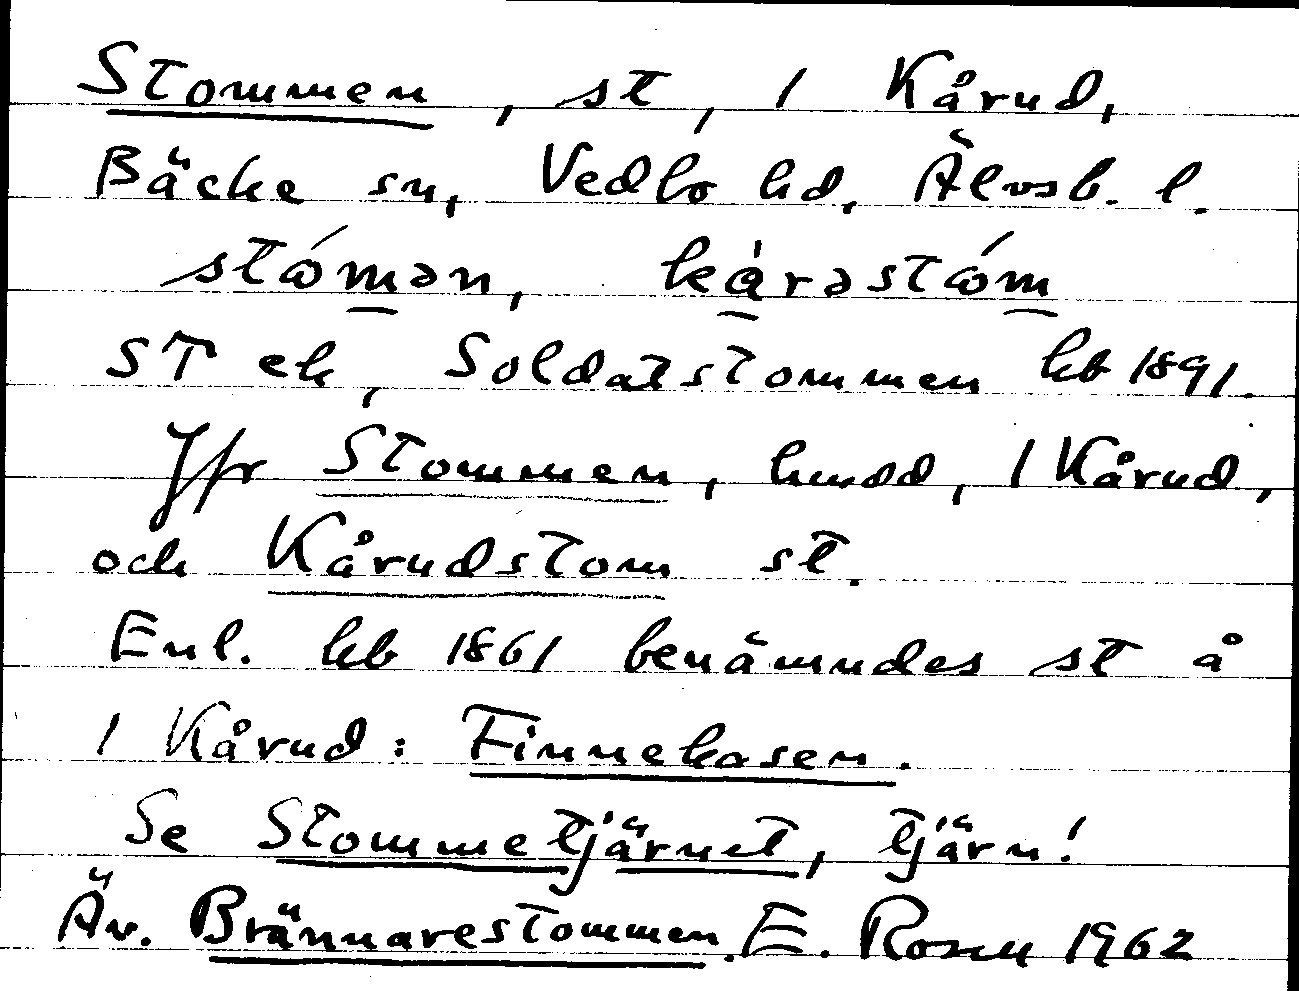 Stommen, st, 1 Kårud,
Bäcke sn, Vedbo hd, Älvsb. l.
stómən, kàrəstóm
ST ek, Soldatstommen kb 1891.
Jfr Stommen, hmdd, 1 Kårud,
och Kårudstom st.
Enl. kb 1861 benämndes st å
1 Kårud: Finnekasen.
Se Stommetjärnet, tjärn!
Äv. Brännarestommen. E. Rosen 1962